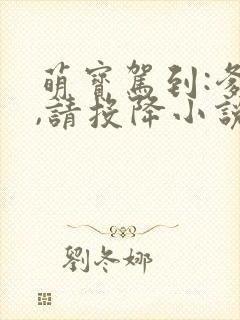 萌寶駕到:爹
,請投降小說
劉冬娜